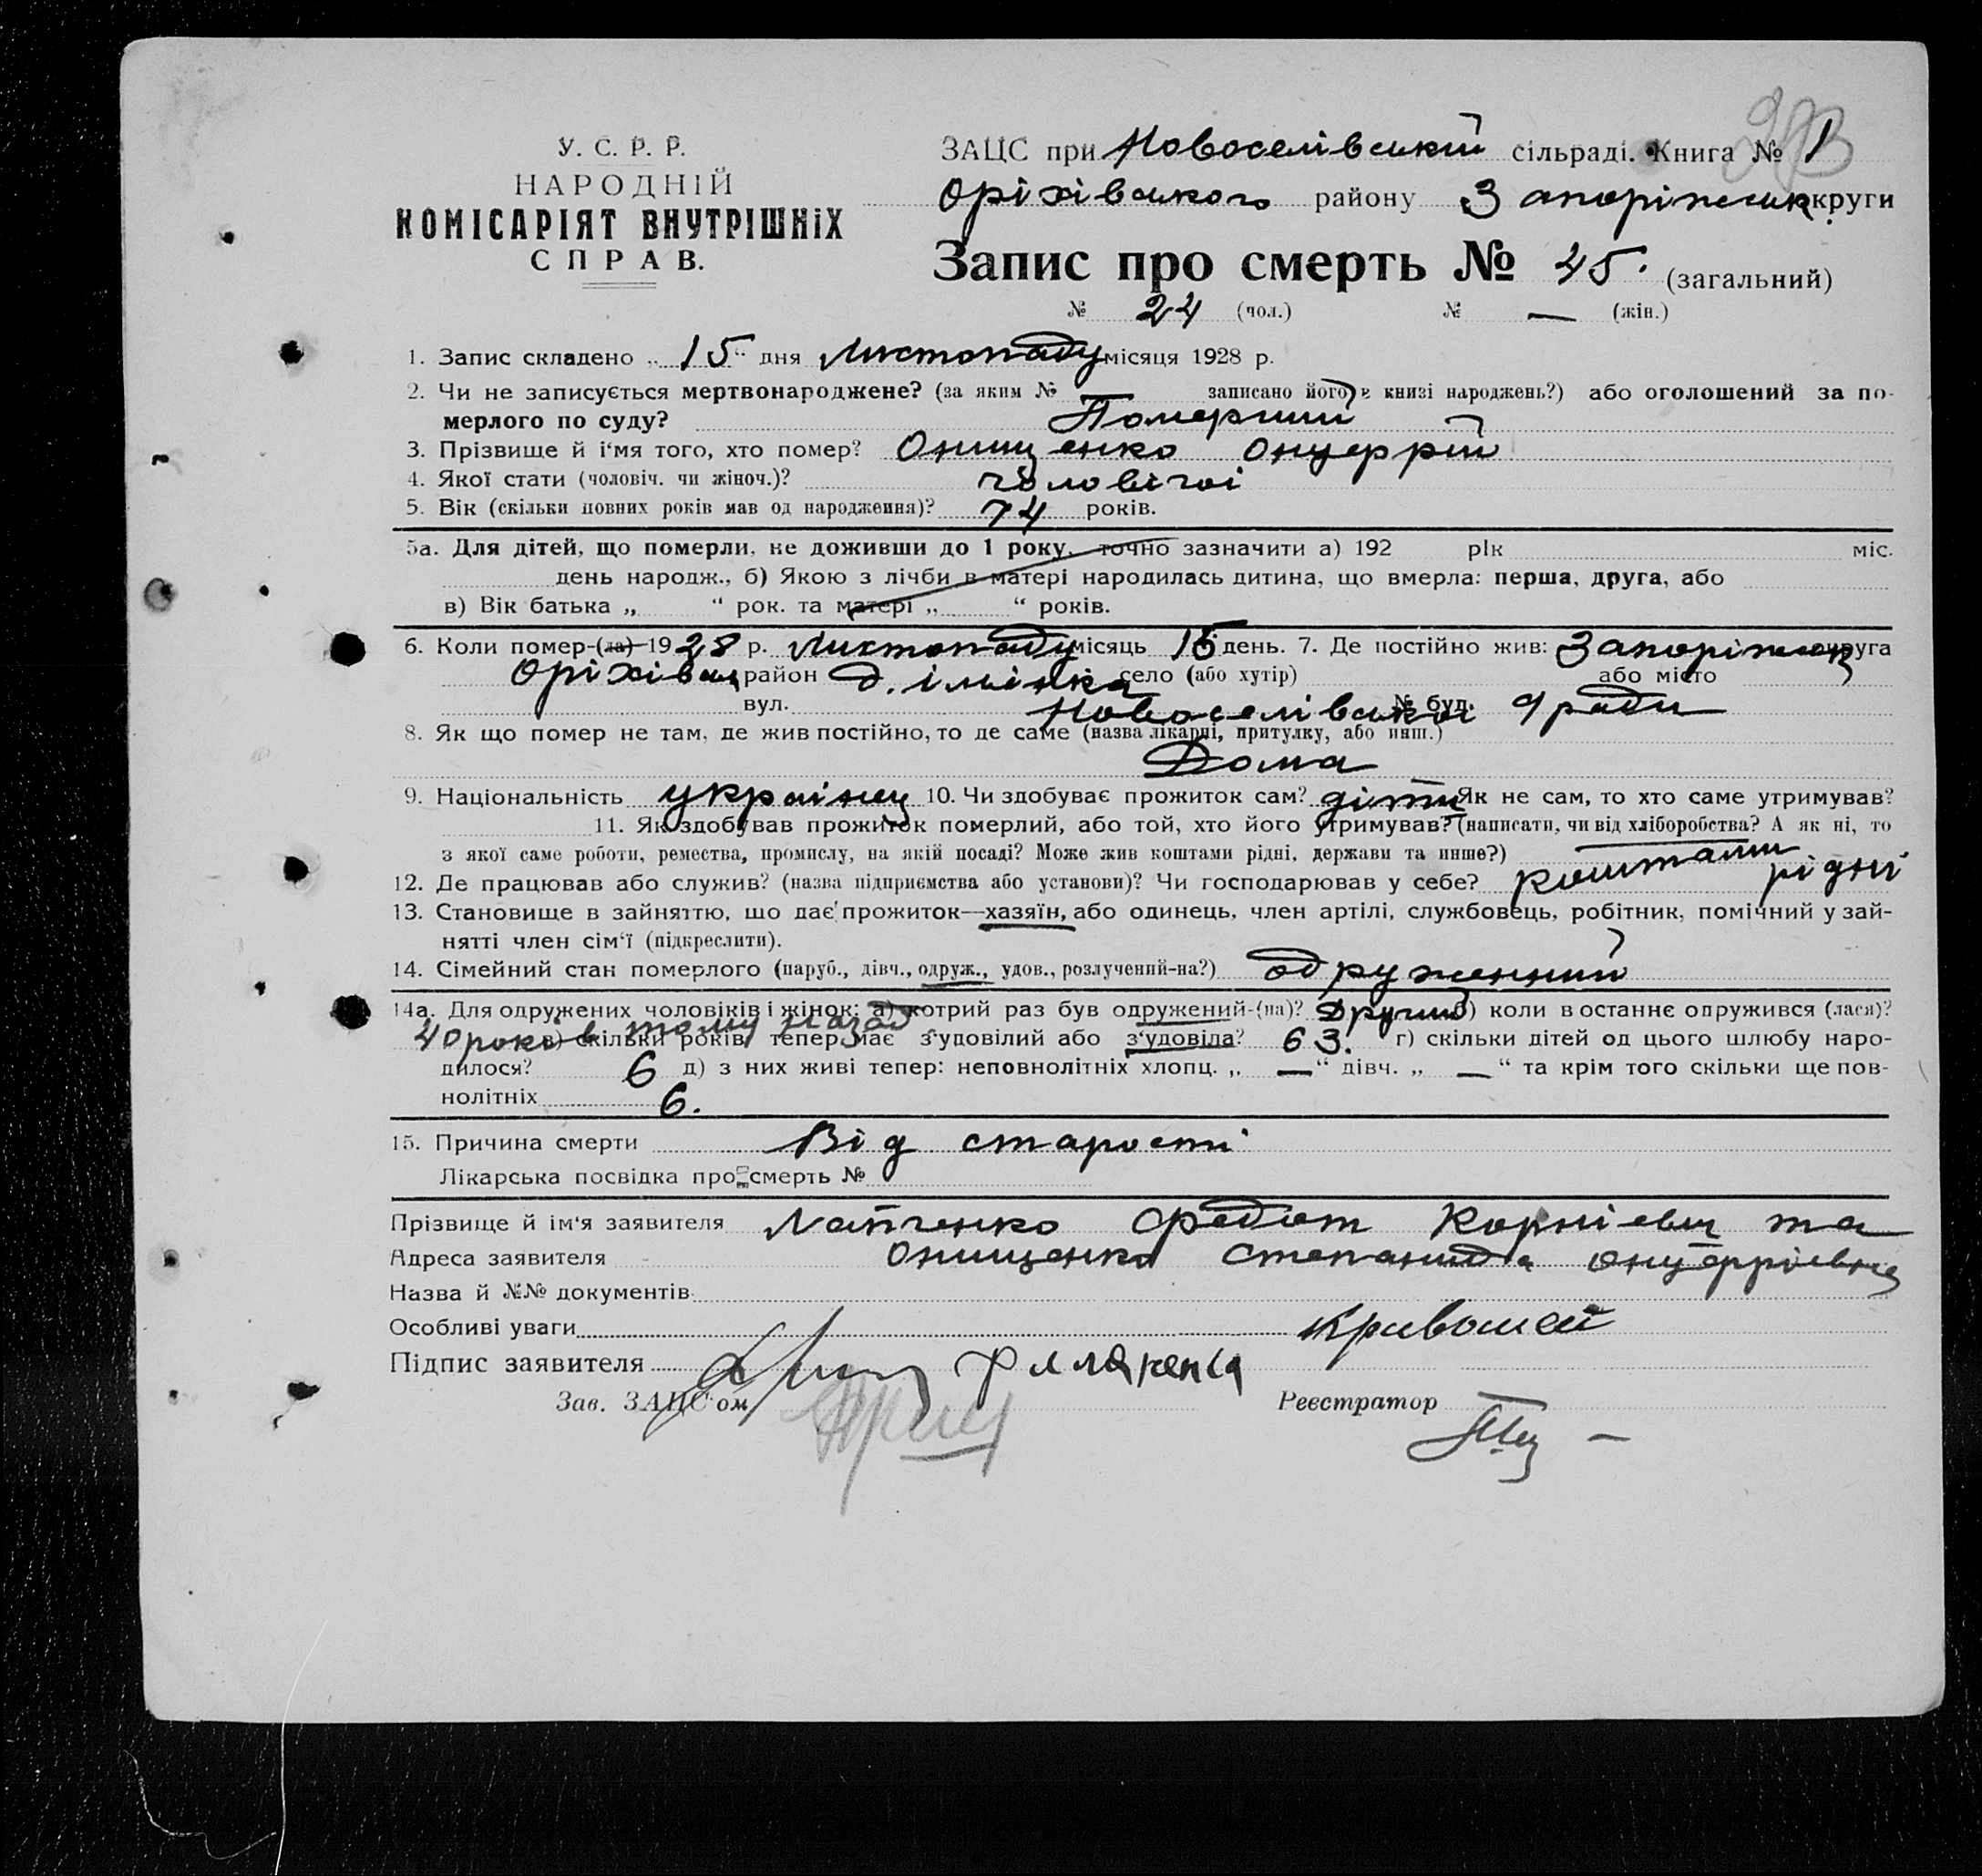 У. С. Р. Р.
НАРОДНІЙ
КОМІСАРІЯТ ВНУТРІШНІХ
СПРАВ.
ЗАЦС при Новоселівській сільраді. Книга № 1
Оріхівського району Запоріжськ округи
Запис про смерть № 45. (загальний)
№ 24 (чол.) № — (жін.)
1. Запис складено „ 15 “ дня Листопаду місяця 1928 р.
2. Чи не записується мертвонароджене? (за яким № записано його в книзі народжень?) або оголошений за по-
мерлого по суду? Померший
3. Прізвище й і‘мя того, хто помер? Онищенко Онуфрій
4. Якої стати (чоловіч. чи жіноч.)? чоловічої
5. Вік (скільки повних років мав од народження)? 74 років.
5а. Для дітей, що померли, не доживши до 1 року, точно зазначити а) 192 рік міс.
день народж., б) Якою з лічби в матері народилась дитина, що вмерла: перша, друга, або
в) Вік батька „ “ рок. та матері „ “ років.
6. Коли помер-(ла) 1928 р. Листопаду місяць 15 день. 7. Де постійно жив: Запоріжськ округа
Оріхівськ район село (або хутір) або місто
вул. № буд. Новоселівської с/ради
8. Як що помер не там, де жив постійно, то де саме (назва лікарні, притулку, або инш.)
Дома
9. Національність українец 10. Чи здобуває прожиток сам? діти Як не сам, то хто саме утримував?
11. Як здобував прожиток померлий, або той, хто його утримував? (написати, чи від хліборобства? А як ні, то
з якої саме роботи, ремества, промислу, на якій посаді? Може жив коштами рідні, держави та инше?) коштами
12. Де працював або служив? (назва підприємства або установи)? Чи господарював у себе? рідні
13. Становище в зайняттю, що дає прожиток—хазяїн, або одинець, член артілі, службовець, робітник, помічний у зай-
нятті член сім‘ї (підкреслити).
14. Сімейний стан померлого (паруб., дівч., одруж., удов., розлучений-на?) одруженний
14а. Для одружених чоловіків і жінок: а) котрий раз був одружений-(на)? Другий б) коли востаннє одружився (лася)?
40 років тому назад в) скільки років тепер має з‘удовілий або з‘удовіла? 63. г) скільки дітей од цього шлюбу наро-
дилося? 6 д) з них живі тепер: неповнолітніх хлопц. „ — “ дівч. „ — “ та крім того скільки ще пов-
нолітніх 6.
15. Причина смерти Від старости
Лікарська посвідка про смерть №
Прізвище й ім‘я заявителя Латченко Федот Корнієвич та
Адреса заявителя Онищенко Степанида Онуфріевна
Назва й №№ документів
Особливі уваги Кривошей
Підпис заявителя
Зав. ЗАЦС‘ом Реєстратор